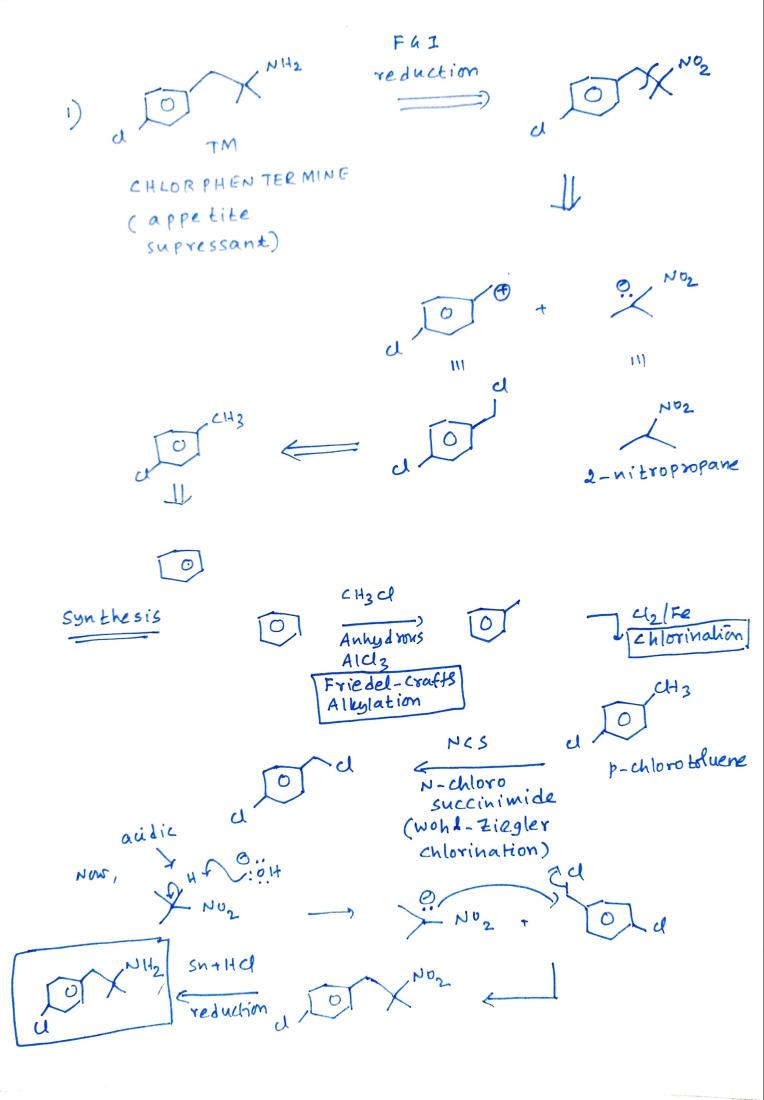 FGI
reduction
NH2
NO2
1)
Cl
Cl
TM
CHLORPHENTERMINE
(appetite
supressant)
⊕
+
⊖
NO2
Cl
Cl
CH3
Cl
Cl
NO2
2-nitropropane
Synthesis
CH3Cl
Anhydrous
AlCl3
Friedel-Crafts
Alkylation
Cl2/Fe
Chlorination
CH3
Cl
p-chlorotoluene
Cl
Cl
NCS
N-chloro
succinimide
(Wohl-Ziegler
chlorination)
acidic
Now,
H
⊖
:ÖH
NO2
⊖
NO2
+
Cl
Cl
NH2
Cl
Sn+HCl
reduction
NO2
Cl